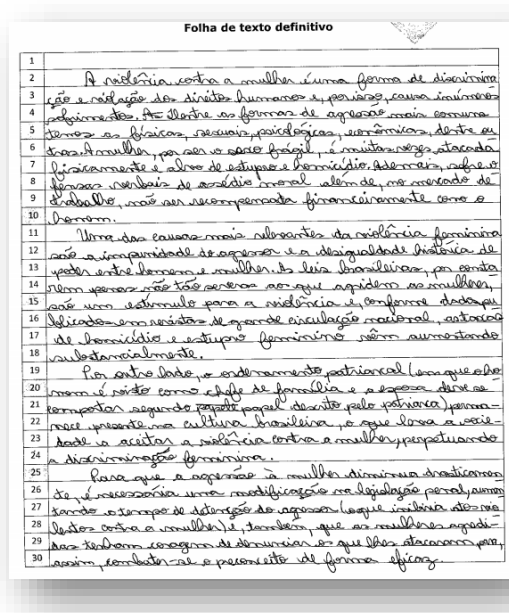 Folha de texto definitivo
1
2 A violência contra a mulher é uma forma de discrimina
3 ção e violação dos direitos humanos e, por isso, causa inúmeros
4 sofrimentos. As Dentre as formas de agressão mais comuns
5 temos as físicas, sexuais, psicológicas, econômicas, dentre ou
6 tras. A mulher, por ser o sexo frágil, é muitas vezes atacada
7 fisicamente e alvo de estupro e homicídio. Ademais, sofre o
8 fensas verbais de assédio moral além de, no mercado de
9 trabalho, não ser recompensada financeiramente como o
10 homem.
11 Uma das causas mais relevantes da violência feminina
12 são a impunidade do agressor e a desigualdade histórica de
13 poder entre homem e mulher. As leis brasileiras, por conta
14 rem penas não tão severas aos que agridem as mulheres,
15 são um estímulo para a violência e, conforme dados pu
16 blicados em revistas de grande circulação nacional, as taxas
17 de homicídio e estupro feminino vêm aumentando
18 substancialmente.
19 Por outro lado, o ordenamento patriarcal (em que o ho
20 mem é visto como chefe de família e a esposa deve se
21 comportar segundo papel descrito pelo patriarca) perma-
22 nece presente na cultura brasileira, o que leva a socie-
23 dade a aceitar a violência contra a mulher, perpetuando
24 a discriminação feminina.
25 Para que a agressão à mulher diminua drasticamen
26 te, é necessária uma modificação na legislação penal, aumen
27 tando o tempo de detenção do agressor (o que inibiria atos vio
28 lentos contra a mulher) e, também, que as mulheres agredi-
29 das tenham coragem de denunciar o que lhes atacaram para,
30 assim, combater-se o preconceito de forma eficaz.